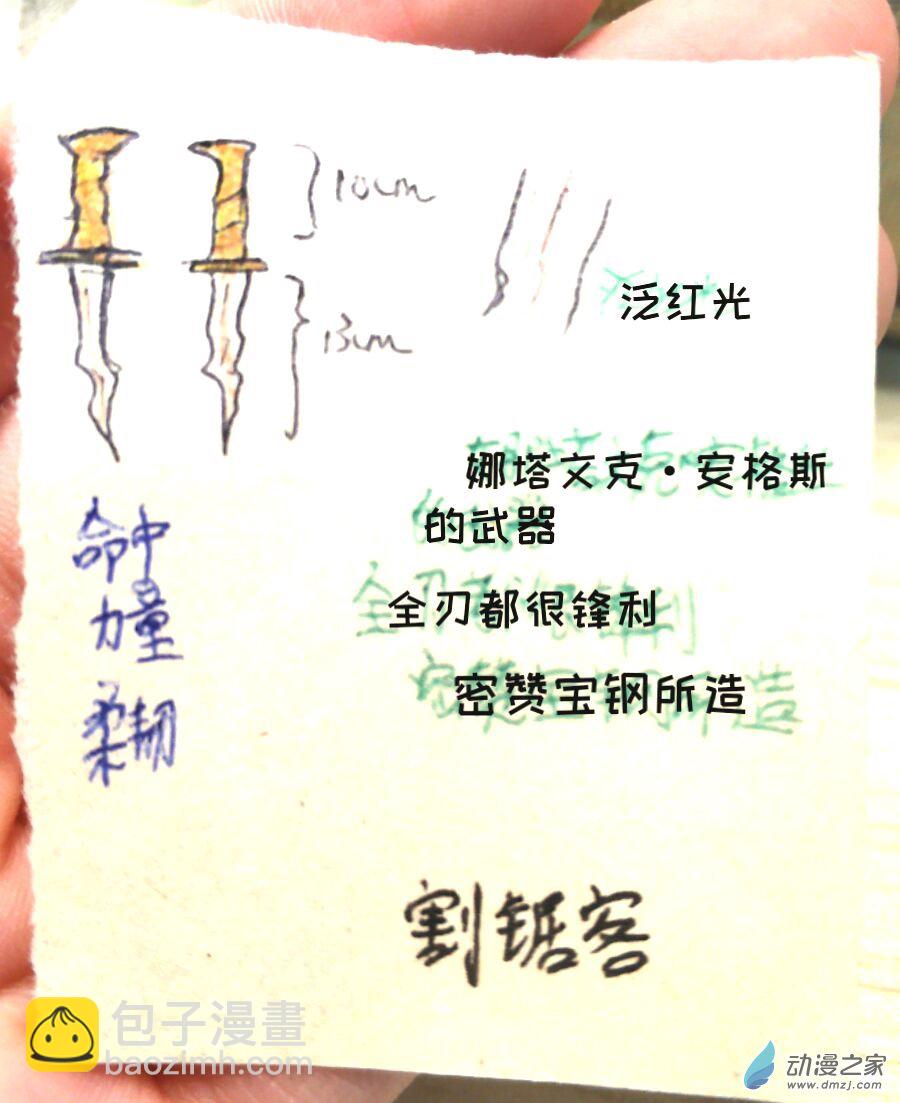 10cm
13cm
泛红光
娜塔文克·安格斯
的武器
全刃都很锋利
密赞宝钢所造
命中
力量
柔韧
割锯客
包子漫畫
baozimh.com
动漫之家
www.dmzj.com